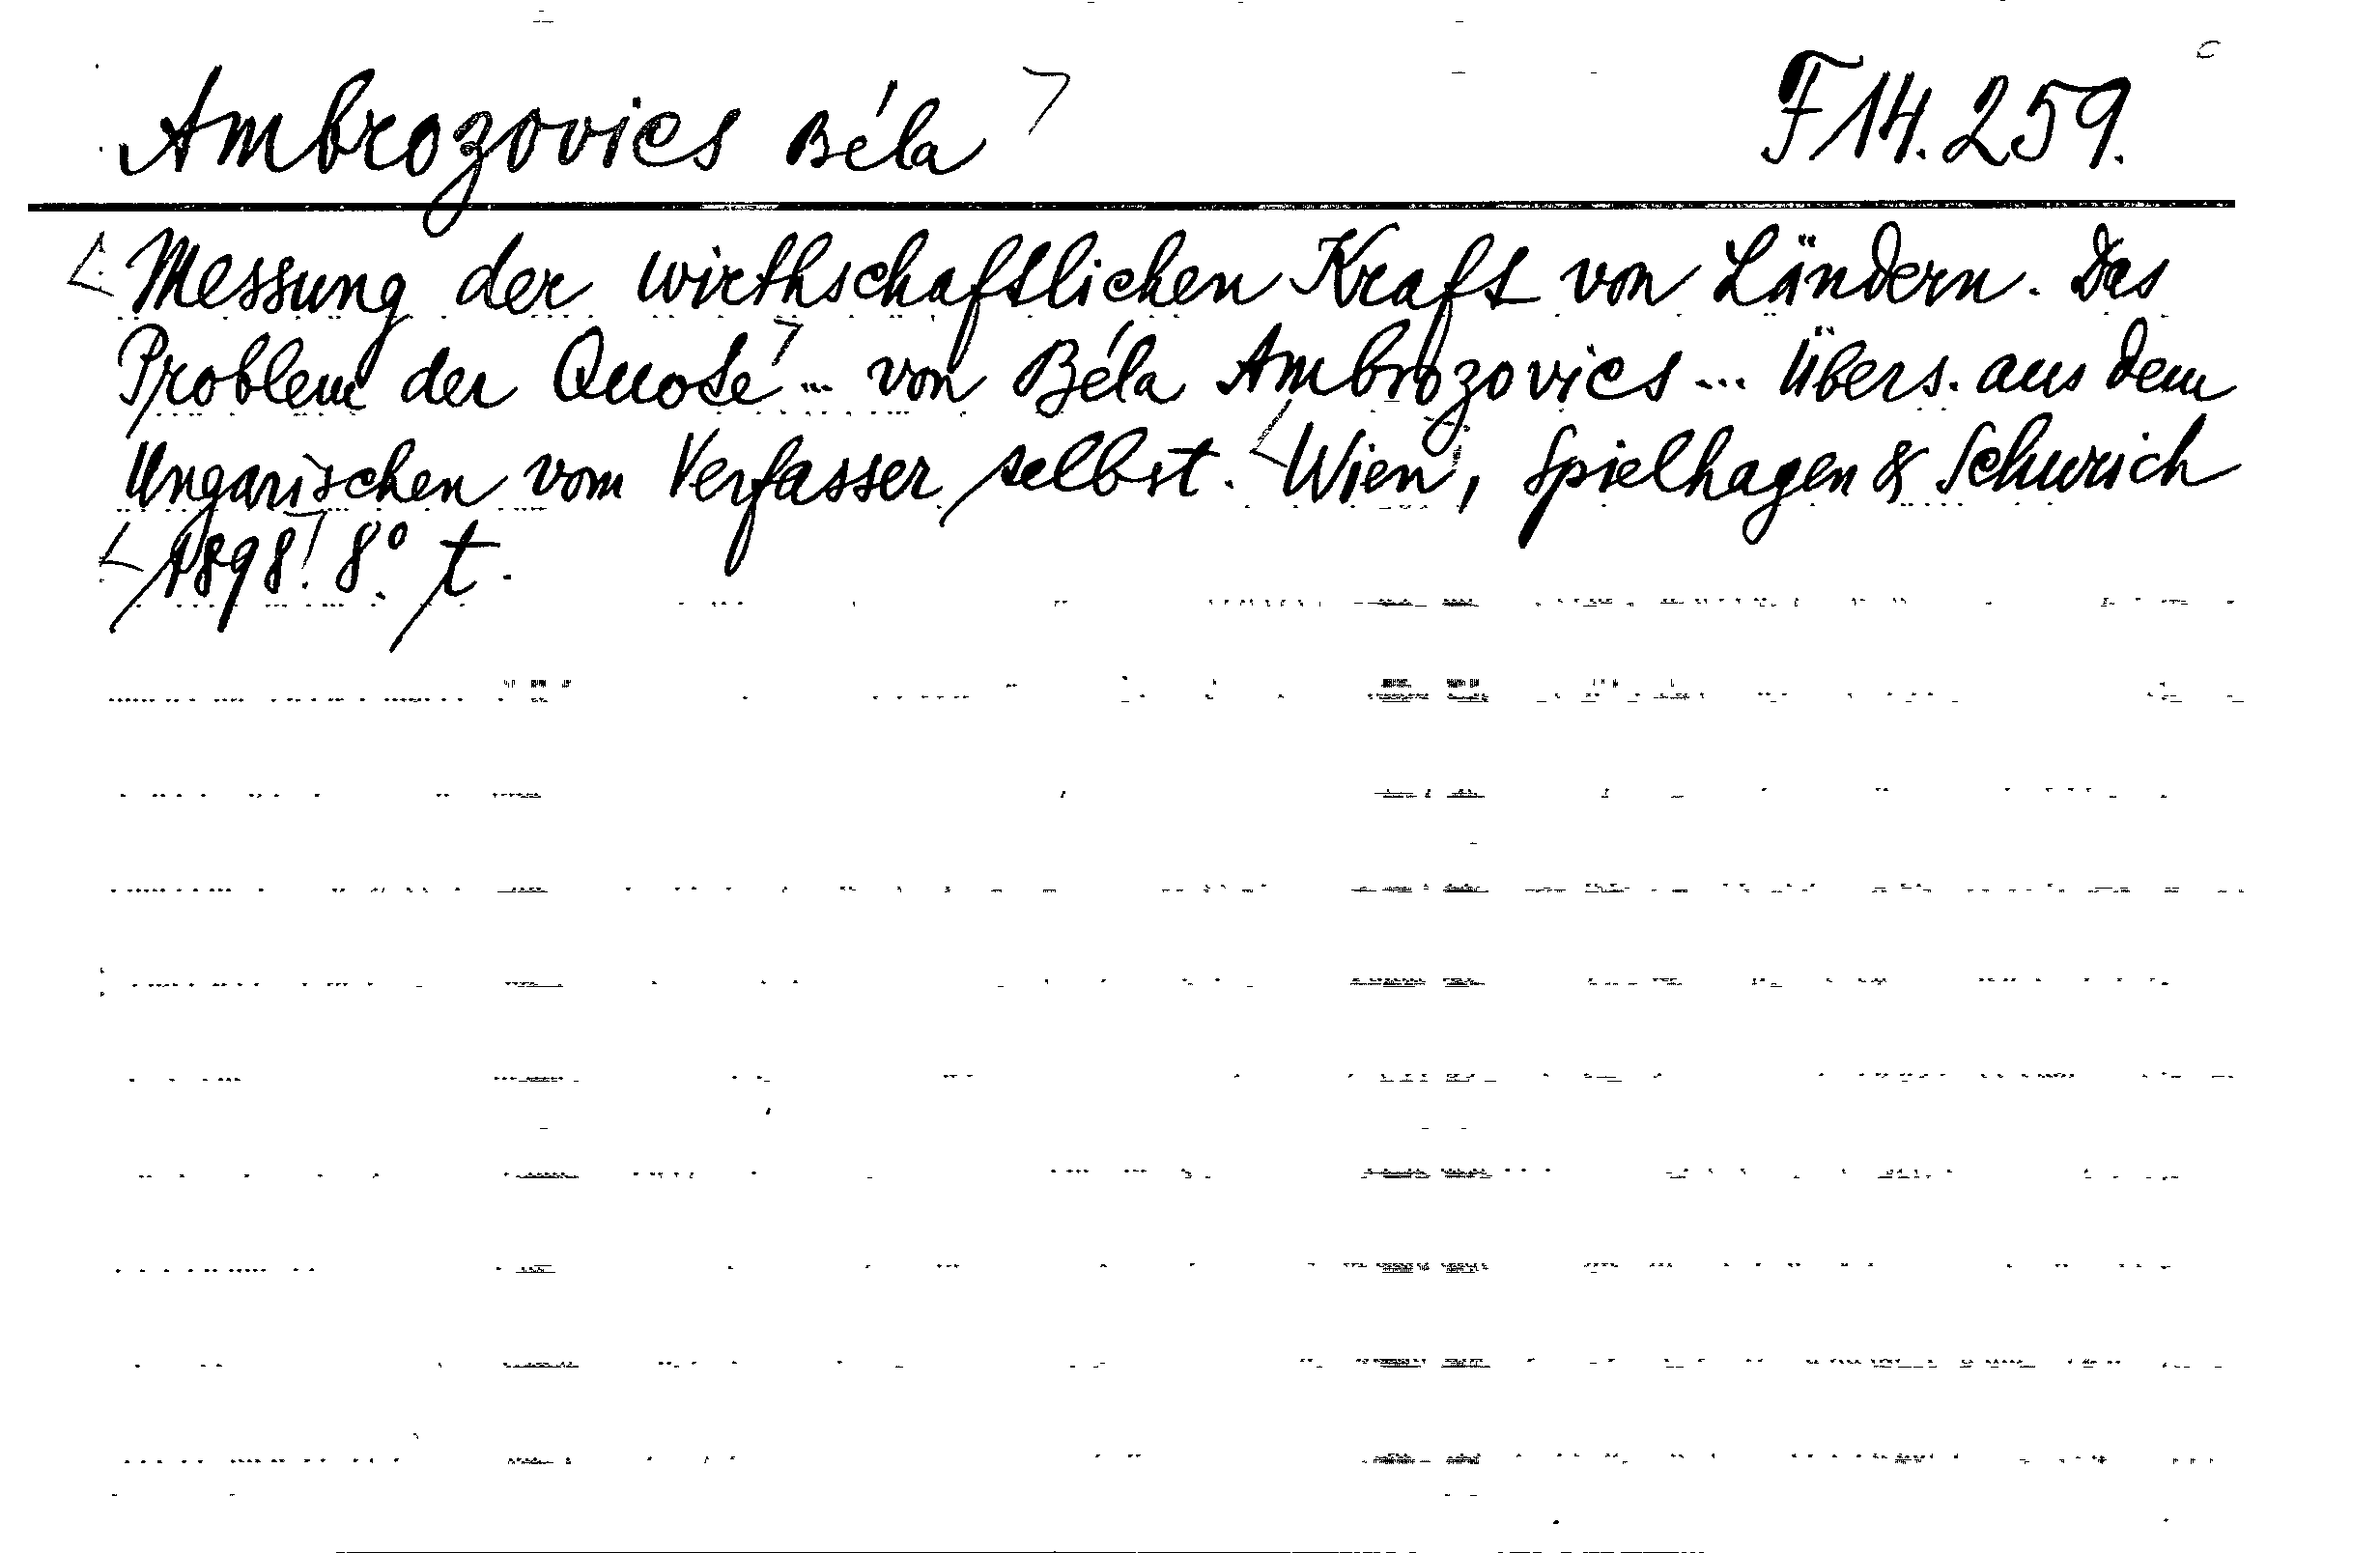 Ambrozovics Béla F 14.259.
Messung der wirthschaftlichen Kraft von Ländern. Das
Problem der Quote ... von Béla Ambrozovics ... Übers. aus dem
Ungarischen vom Verfasser selbst. Wien, Spielhagen & Schurich
1898. 8° t.